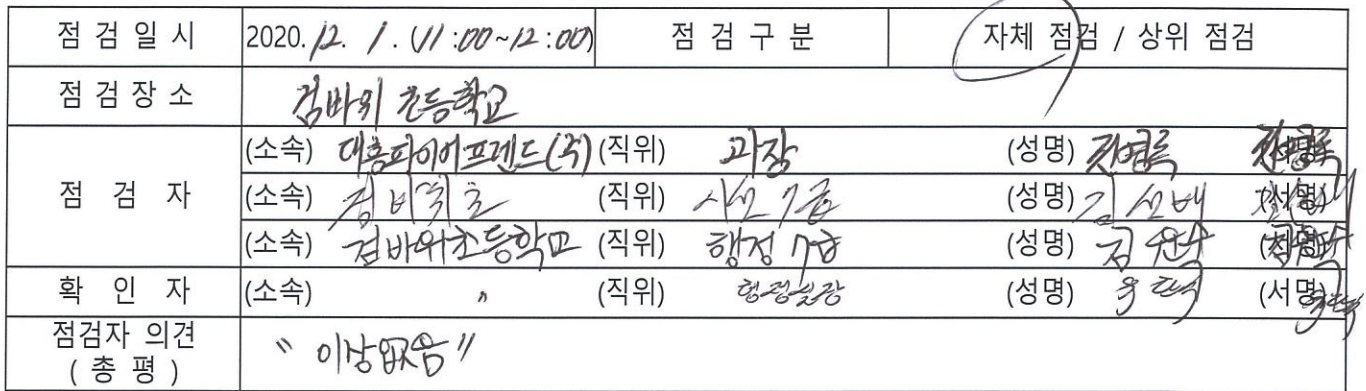 점 검 일 시 2020. 12. 1. (11:00~12:00) 점 검 구 분 자체 점검 / 상위 점검
점 검 장 소 검바위 초등학교
(소속) 대흥파이어프렌드(주) (직위) 과장 (성명)
점 검 자 (소속) 검바위초 (직위) 시설7급 (성명) 김선배 (서명)
(소속) 검바위초등학교 (직위) 행정 7급 (성명) (서명)
확 인 자 (소속) 〃 (직위) 행정실장 (성명) (서명)
점검자 의견
( 총 평 )
" 이상없음 "